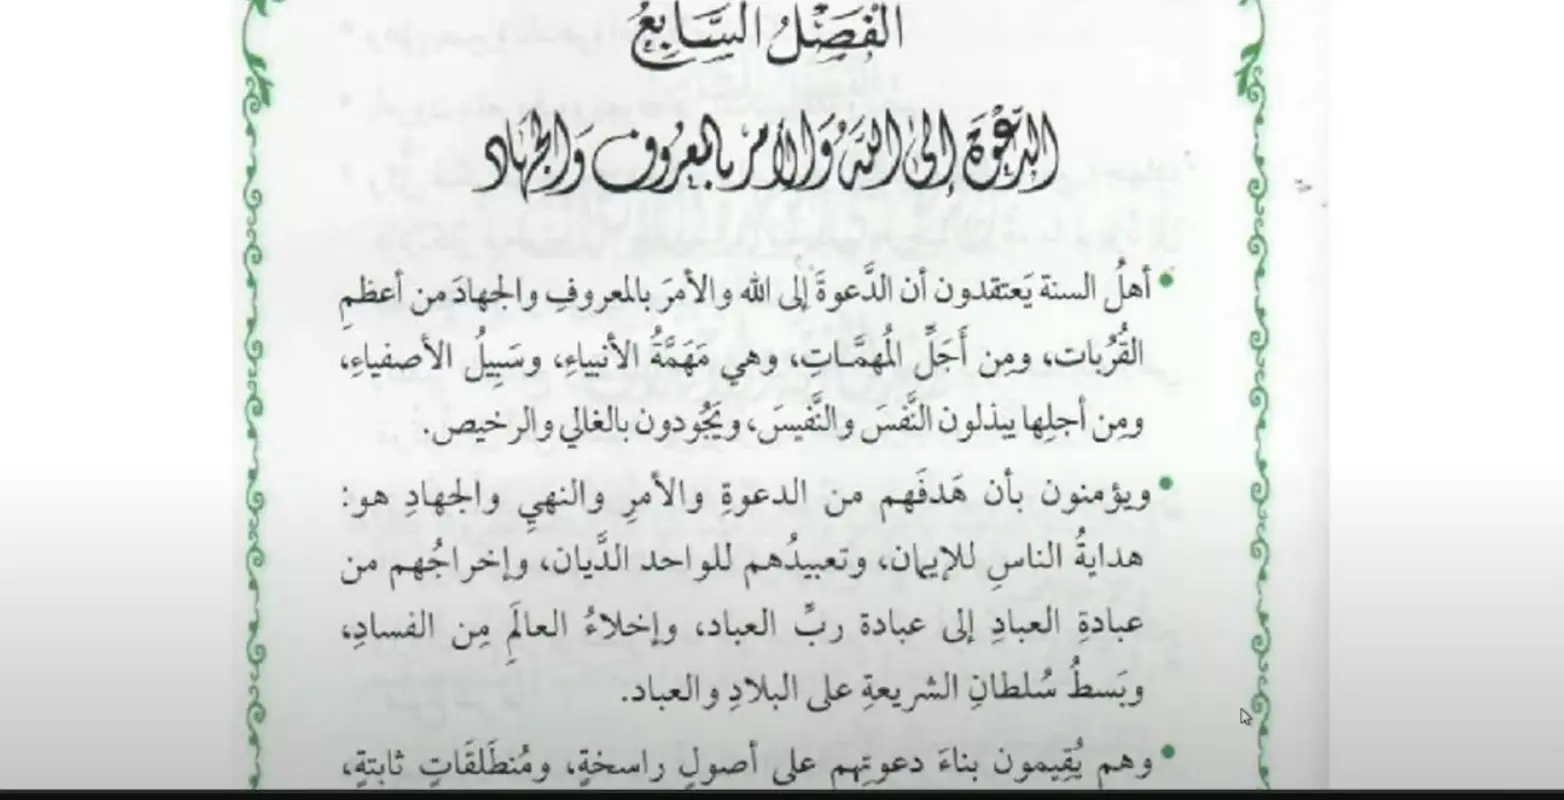 الْفَصْلُ السَّابِعُ
الدَّعْوَةُ إِلَى اللَّهِ وَالأَمْرُ بِالمَعْرُوفِ وَالجِهَاد
• أهلُ السنة يَعتقدون أن الدَّعوةَ إلى الله والأمرَ بالمعروفِ والجهادَ من أعظمِ
القُرُبات، ومِن أَجَلِّ المُهمَّاتِ، وهي مَهَمَّةُ الأنبياءِ، وسَبِيلُ الأصفياءِ،
ومِن أجلِها يبذلون النَّفسَ والنَّفيسَ، ويَجُودون بالغالي والرخيص.
• ويؤمنون بأن هَدفَهم من الدعوةِ والأمرِ والنهيِ والجهادِ هو:
هدايةُ الناسِ للإيمان، وتعبيدُهم للواحد الدَّيان، وإخراجُهم من
عبادةِ العبادِ إلى عبادة ربِّ العباد، وإخلاءُ العالَمِ مِن الفسادِ،
وبَسطُ سُلطانِ الشريعةِ على البلادِ والعباد.
• وهم يُقِيمون بناءَ دعوتِهم على أصولٍ راسخةٍ، ومُنطَلَقَاتٍ ثابتةٍ،